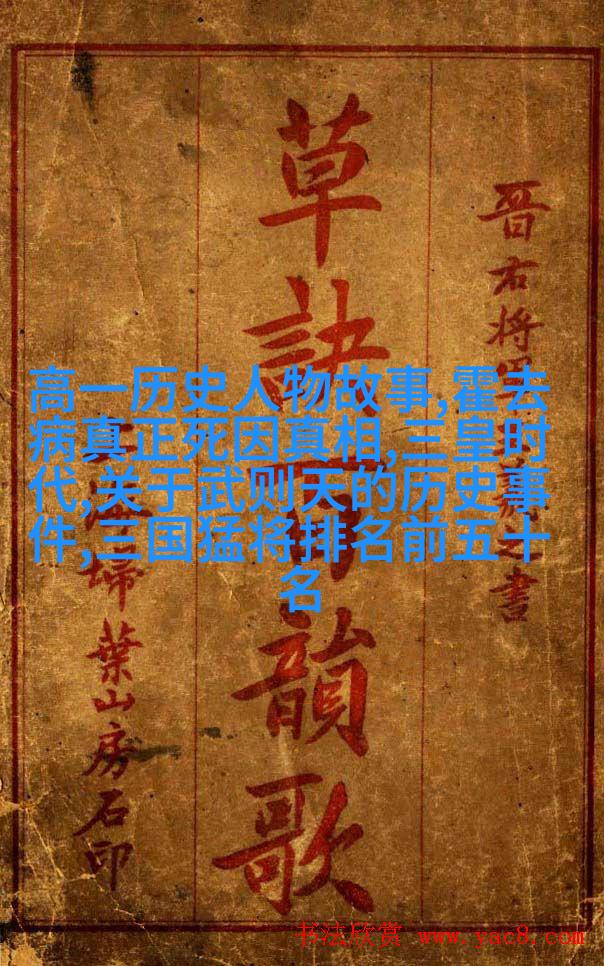 晋右将
之書
草訣
韻歌
掃葉山房石印
高一历史人物故事,霍去
病真正死因真相,三皇时
代,关于武则天的历史事
件,三国猛将排名前五十
名
书法欣赏 www.yac8.com